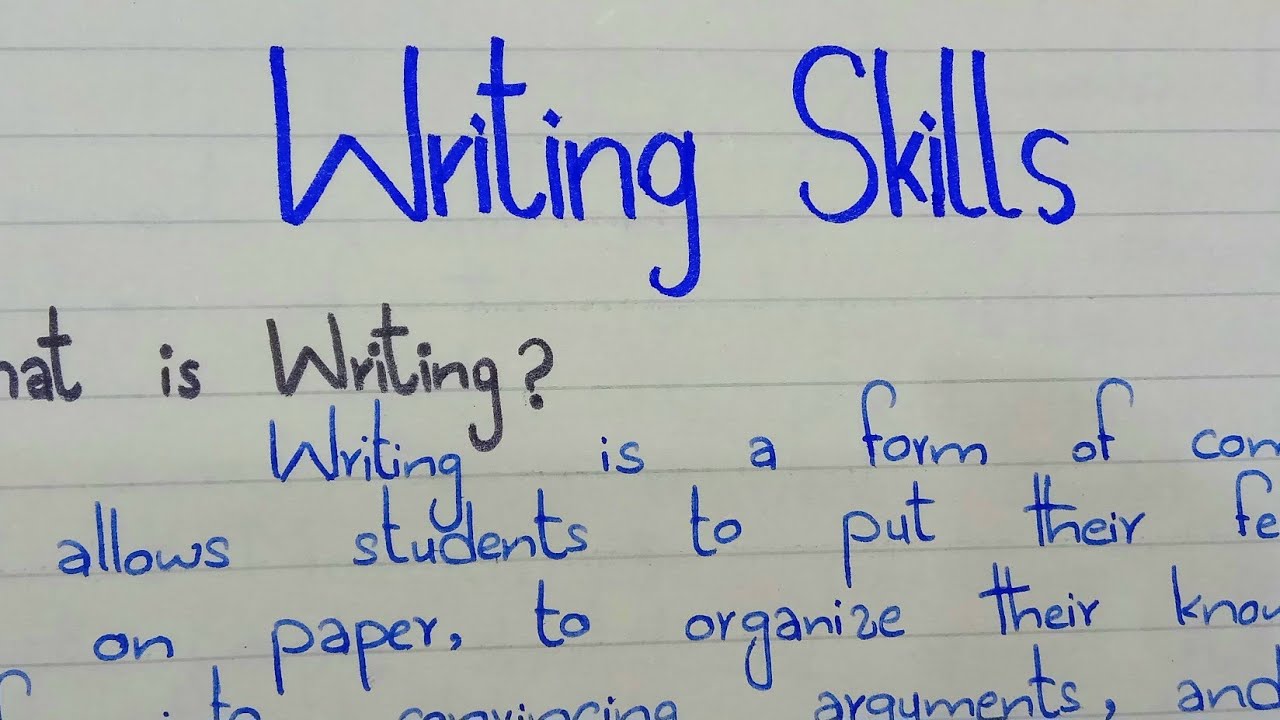 Writing Skills
is Writing?
Writing is a form of
allows students to put their
on paper, to organize their
to convincing arguments, and